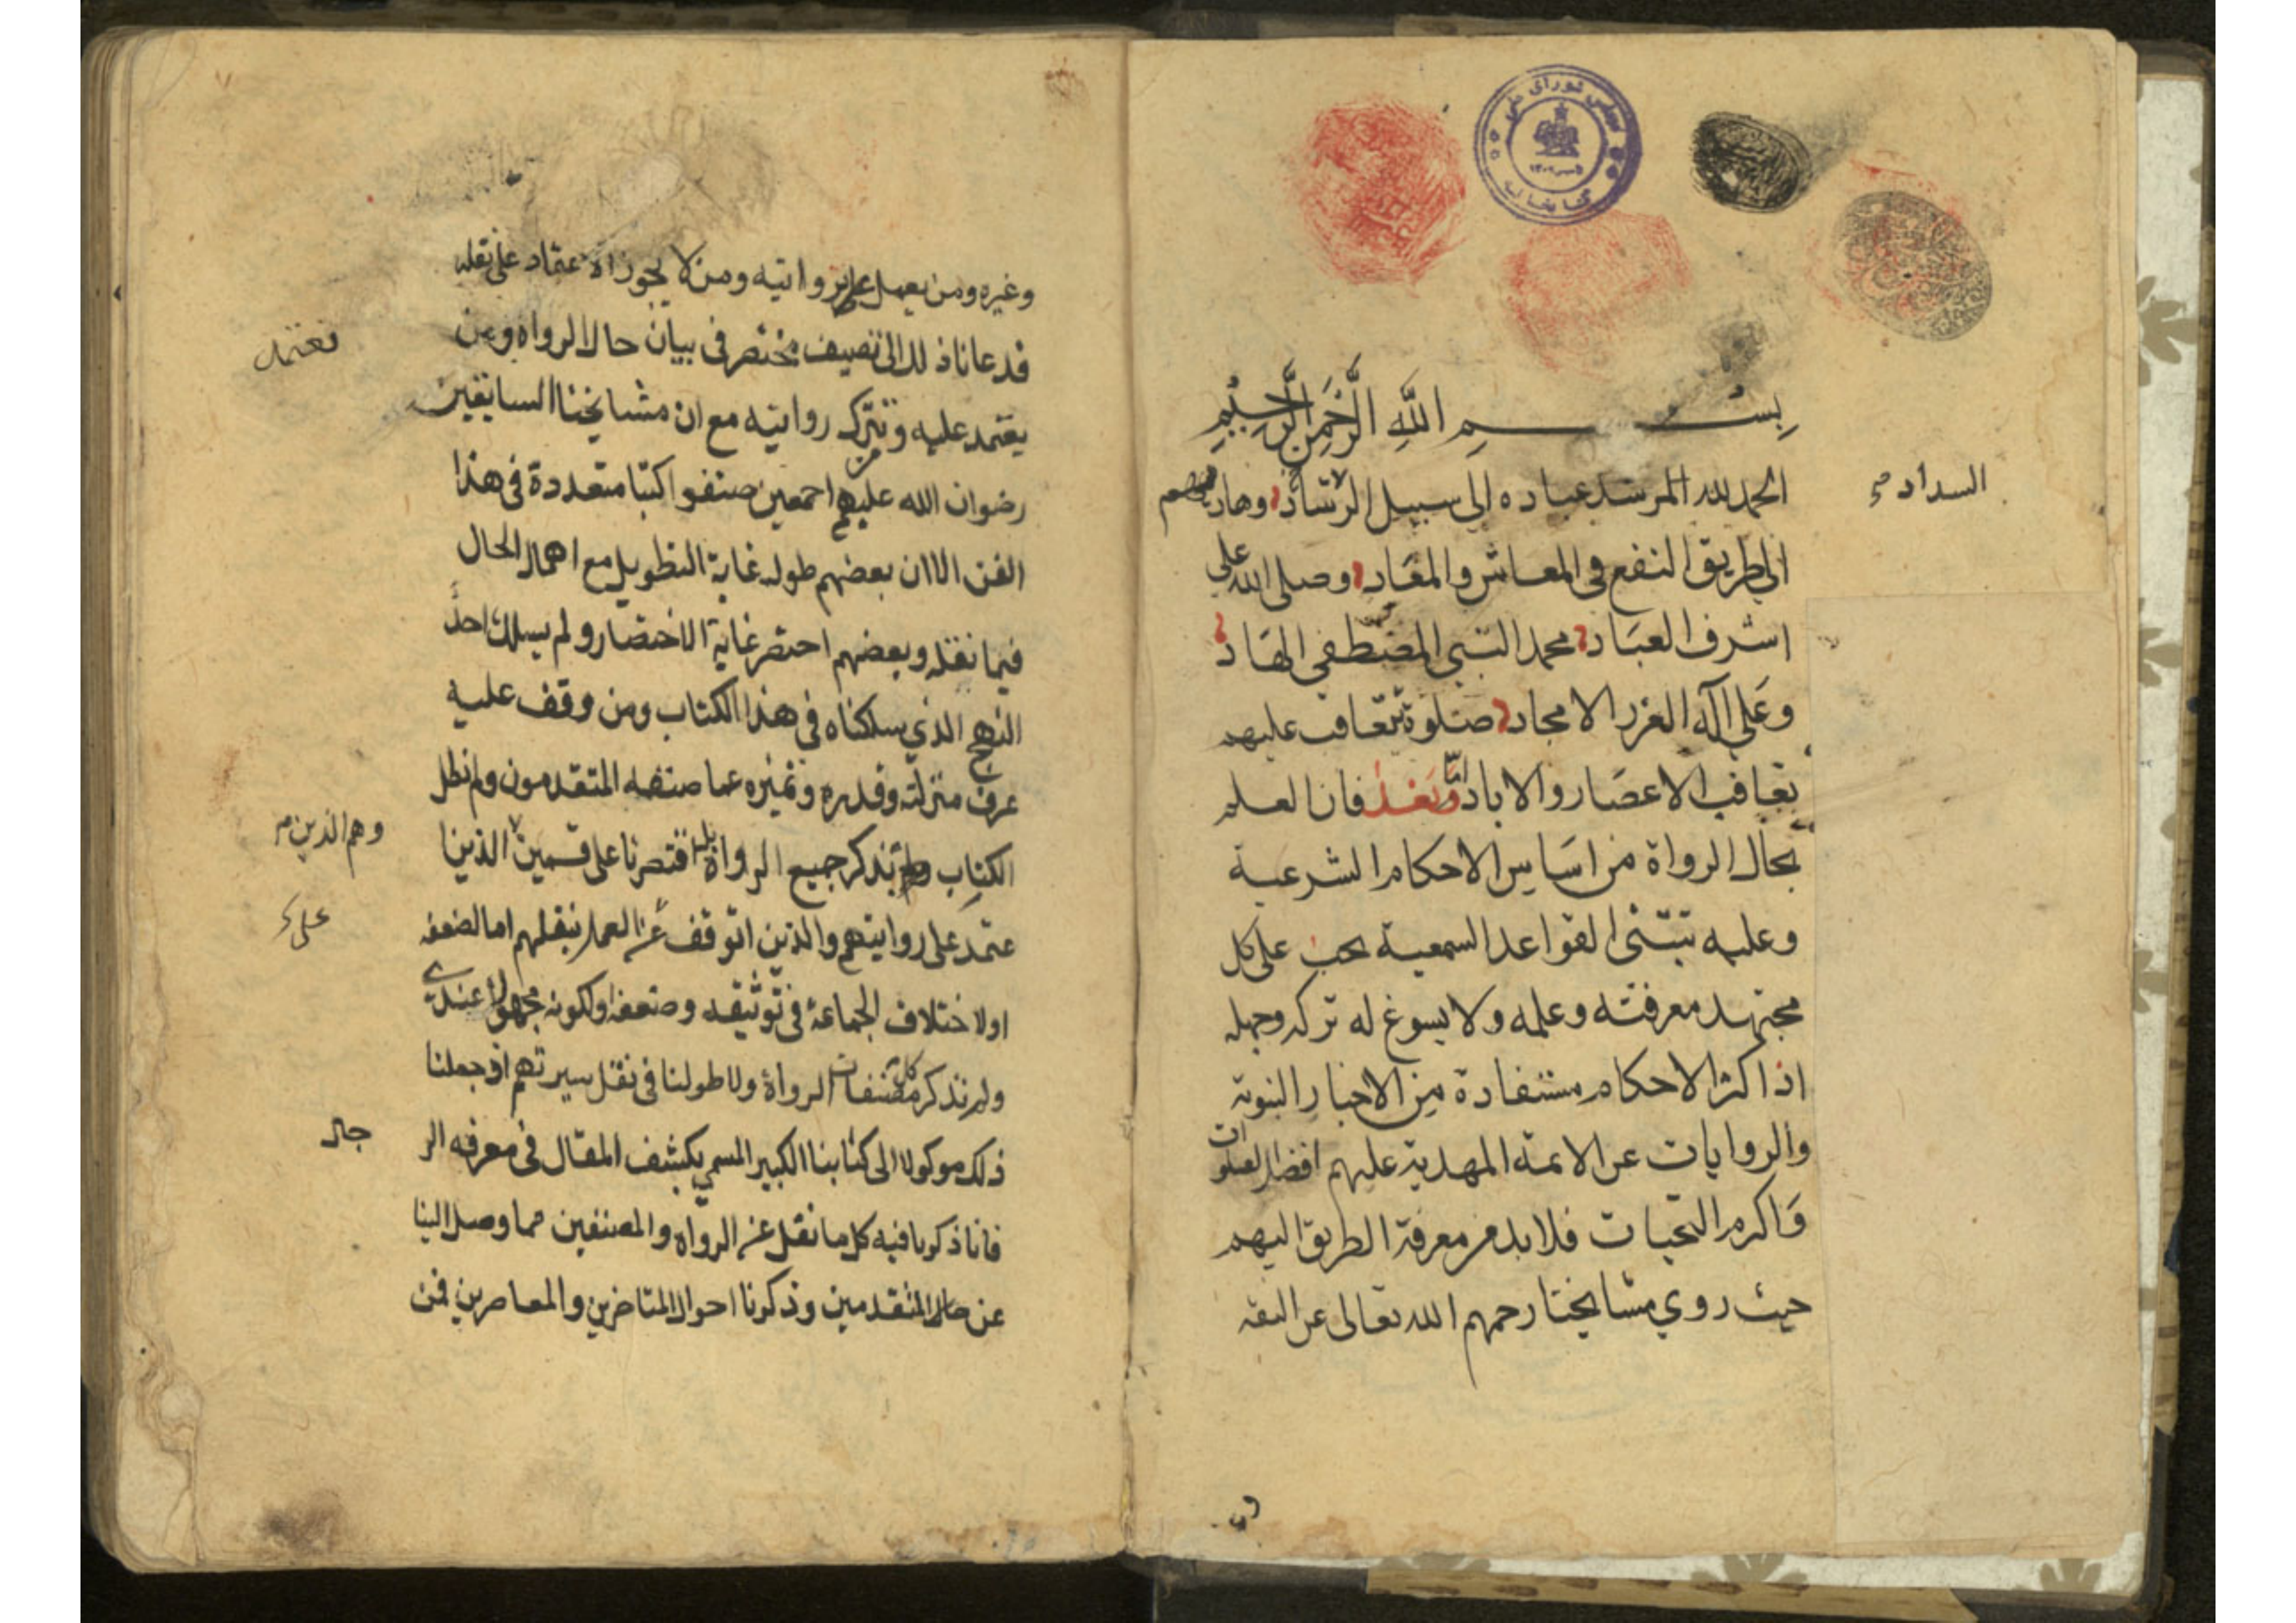 مجلس شورای ملی
کتابخانه
بِسْمِ اللَّهِ الرَّحْمَنِ الرَّحِيمِ
الحمد لله المرشد عباده الى سبيل الرشاد وهاديهم
السداد
الى طريق النفع في المعاش والمعاد وصلى الله على
اشرف العباد محمد النبي المصطفى الهاد
وعلى آله الغرر الامجاد صلوة تتعاقب عليهم
تعاقب الاعصار والاباد اما وبعد فان العلم
بحال الرواة من اساس الاحكام الشرعية
وعليه تبتنى القواعد السمعية يجب على كل
مجتهد معرفته وعلمه ولا يسوغ له تركه وجهله
اذ اكثر الاحكام مستفادة من الاخبار النبوية
والروايات عن الائمة المهدية عليهم افضل الصلوات
واكرم التحيات فلا بد من معرفة الطريق اليهم
حيث روي مشايخنا رحمهم الله تعالى عن الثقة
وغيره ومن يعمل على بروايته ومن لا يجوز الاعتماد على نقله
فدعانا ذلك الى تصنيف مختصر في بيان حال الرواه ومن
نعتمد
يعتمد عليه ونترك روايته مع ان مشايخنا السابقين
رضوان الله عليهم اجمعين صنفوا كتبا متعددة في هذا
الفن الا ان بعضهم طول غاية التطويل مع اهمال الحال
فيما نقله وبعضهم اختصر غاية الاختصار ولم يسلك احد
النهج الذي سلكناه في هذا الكتاب ومن وقف عليه
عرف منزلته وقدره وتميزه عما صنفه المتقدمون ولم نطل
الكتاب بذكر جميع الرواة بل اقتصرنا على قسمين الذين ا
وهم الذين
عتمد على روايتهم والذين اتوقف عن العمل بنقلهم اما لضعفه
على
او لاختلاف الجماعة في توثيقه وضعفه او لكونه مجهولا عندي
ولم نذكر كل مصنفات الرواة ولا طولنا في نقل سيرتهم اذ جعلنا
ذلك موكولا الى كتابنا الكبير المسمي بكشف المقال في معرفه الر
جال
فانا ذكرنا فيه كل ما نقل عن الرواه والمصنفين مما وصل الينا
عن حال المتقدمين وذكرنا احوال المتاخرين والمعاصرين فمن